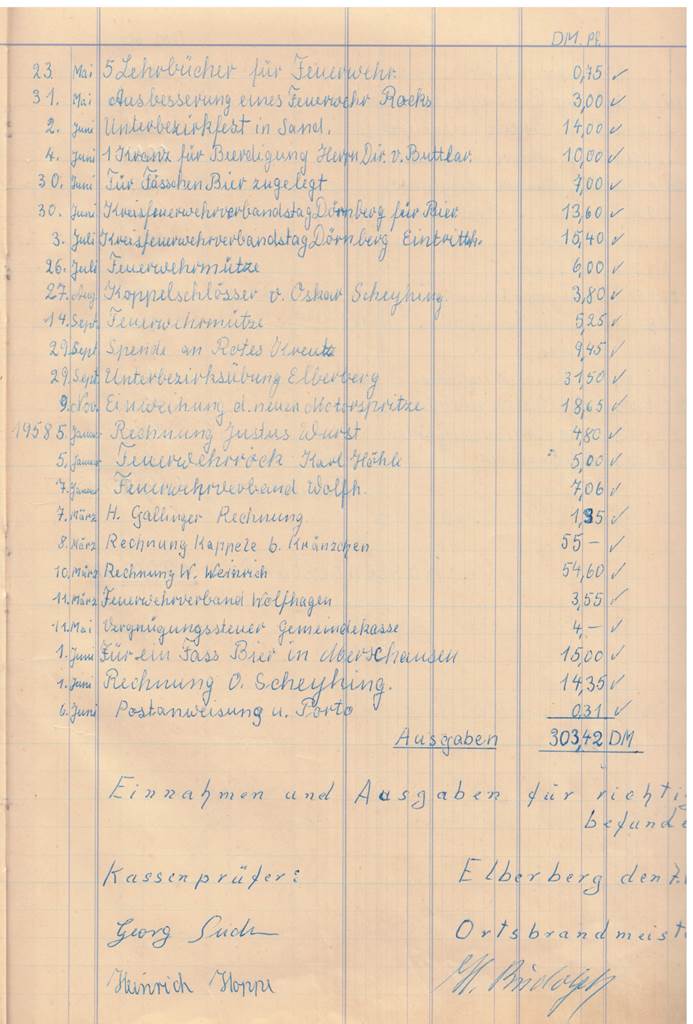 DM. Pf.
23. Mai 5 Lehrbücher für Feuerwehr. 0,75 ✓
31. Mai Ausbesserung eines Feuerwehr Rocks 3,00 ✓
2. Juni Unterbezirkfest in Sand. 14,00 ✓
4. Juni 1 Kranz für Bierdigung Herrn Dir. v. Buttlar. 10,00 ✓
30. Juni Für Fässchen Bier zugelegt 7,00 ✓
30. Juni Kreisfeuerwehrverbandstag Dörnberg für Bier 13,60 ✓
3. Juli Kreisfeuerwehrverbandstag Dörnberg Eintrittk. 15,40 ✓
26. Juli Feuerwehrmütze 6,00 ✓
27. Aug. Koppelschlösser v. Oskar Scheyhing. 3,80 ✓
14. Sept. Feuerwehrmütze 5,25 ✓
29. Sept Spende an Rotes Kreutz 9,45 ✓
29. Sept. Unterbezirksübung Elberberg 31,50 ✓
9. Nov. Einweihung d. neuen Motorspritze 18,65 ✓
1958 5. Januar Rechnung Justus Wurst 4,80 ✓
5. Januar Feuerwehrrock Karl Höhle 5,00 ✓
7. Januar Feuerwehrverband Wolfh. 7,06 ✓
7. März H. Gallinger Rechnung 1,35 ✓
8. März Rechnung Kappele b. Kränzchen 55 – ✓
10. März Rechnung W. Weinrich 54,60 ✓
11. März Feuerwehrverband Wolfhagen 3,55 ✓
11. Mai Vergnügungssteuer Gemeindekasse 4,– ✓
1. Juni Für ein Fass Bier in Merxhausen 15,00 ✓
1. Juni Rechnung O. Scheyhing. 14,35 ✓
6. Juni Postanweisung u. Porto 0,31 ✓
Ausgaben 303,42 DM
Einnahmen und Ausgaben für richti
befunde
Kassenprüfer: Elberberg den 7.
Georg Ortsbrandmeist
Heinrich Hoppe